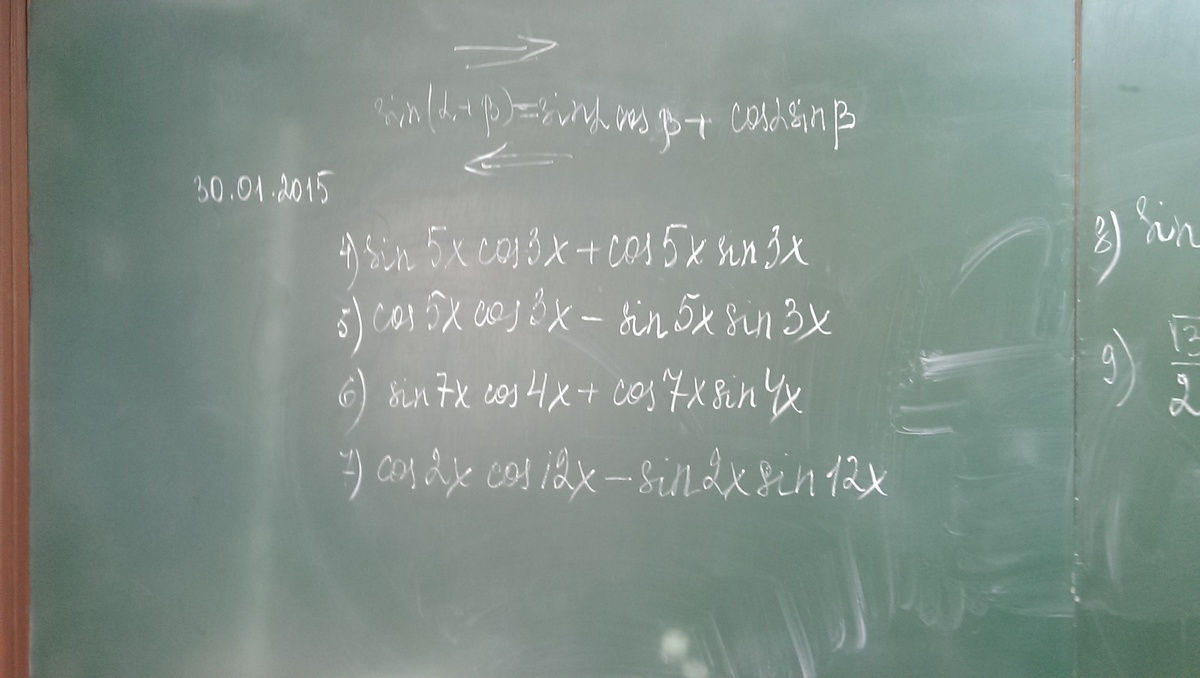 sin(α+β)=sinα cos β + cosα sin β
30.01.2015
4) sin 5x cos 3x + cos 5x sin 3x
5) cos 5x cos 3x - sin 5x sin 3x
6) sin 7x cos 4x + cos 7x sin 4x
7) cos 2x cos 12x - sin 2x sin 12x
8) sin
9) √3/2